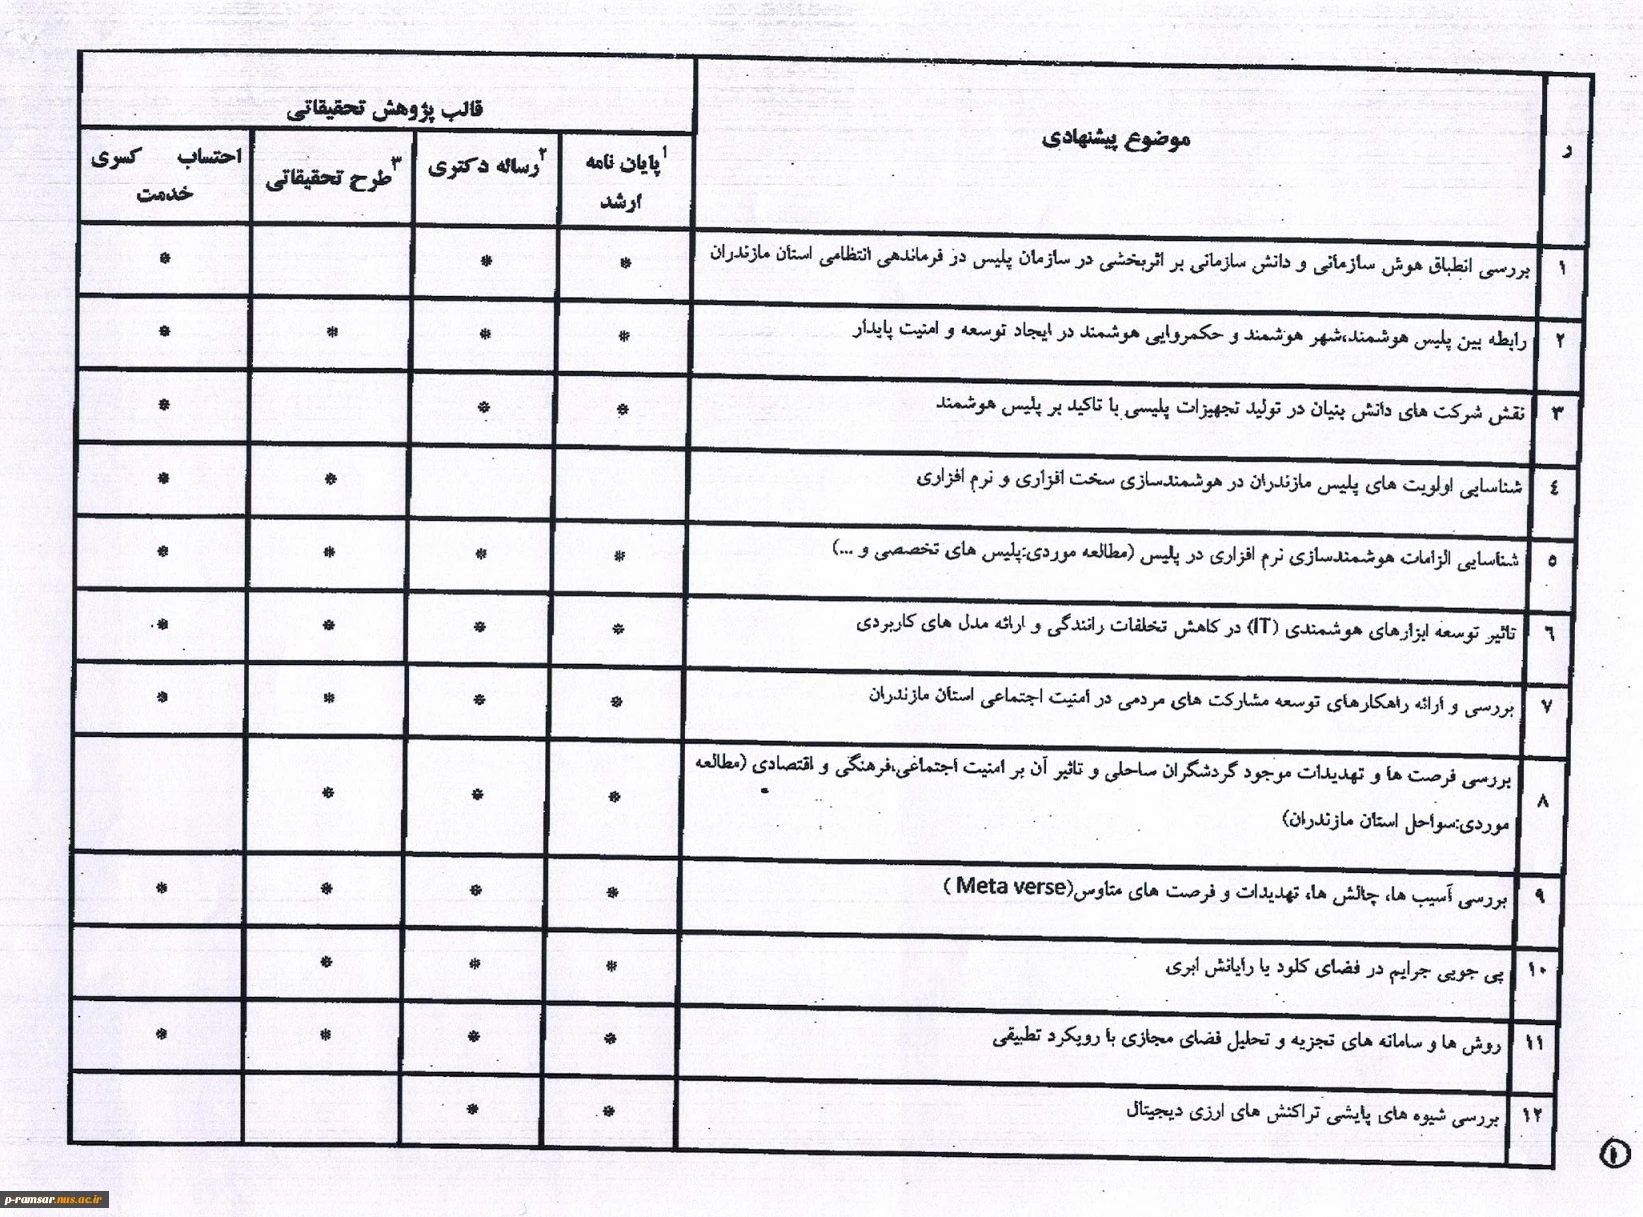 ر
موضوع پیشنهادی
قالب پژوهش تحقیقاتی
پایان نامه۱
ارشد
رساله دکتری۲
طرح تحقیقاتی۳
احتساب کسری
خدمت
۱ بررسی انطباق هوش سازمانی و دانش سازمانی بر اثربخشی در سازمان پلیس در فرماندهی انتظامی استان مازندران * * *
۲ رابطه بین پلیس هوشمند،شهر هوشمند و حکمروایی هوشمند در ایجاد توسعه و امنیت پایدار * * * *
۳ نقش شرکت های دانش بنیان در تولید تجهیزات پلیسی با تاکید بر پلیس هوشمند * * *
٤ شناسایی اولویت های پلیس مازندران در هوشمندسازی سخت افزاری و نرم افزاری * *
٥ شناسایی الزامات هوشمندسازی نرم افزاری در پلیس (مطالعه موردی:پلیس های تخصصی و ...) * * * *
٦ تاثیر توسعه ابزارهای هوشمندی (IT) در کاهش تخلفات رانندگی و ارائه مدل های کاربردی * * * *
۷ بررسی و ارائه راهکارهای توسعه مشارکت های مردمی در امنیت اجتماعی استان مازندران * * * *
۸ بررسی فرصت ها و تهدیدات موجود گردشگران ساحلی و تاثیر آن بر امنیت اجتماعی،فرهنگی و اقتصادی (مطالعه
موردی:سواحل استان مازندران) * * *
۹ بررسی آسیب ها، چالش ها، تهدیدات و فرصت های متاوس(Meta verse ) * * * *
۱۰ پی جویی جرایم در فضای کلود یا رایانش ابری * * *
۱۱ روش ها و سامانه های تجزیه و تحلیل فضای مجازی با رویکرد تطبیقی * * * *
۱۲ بررسی شیوه های پایشی تراکنش های ارزی دیجیتال * *
۱
p-ramsar.nus.ac.ir